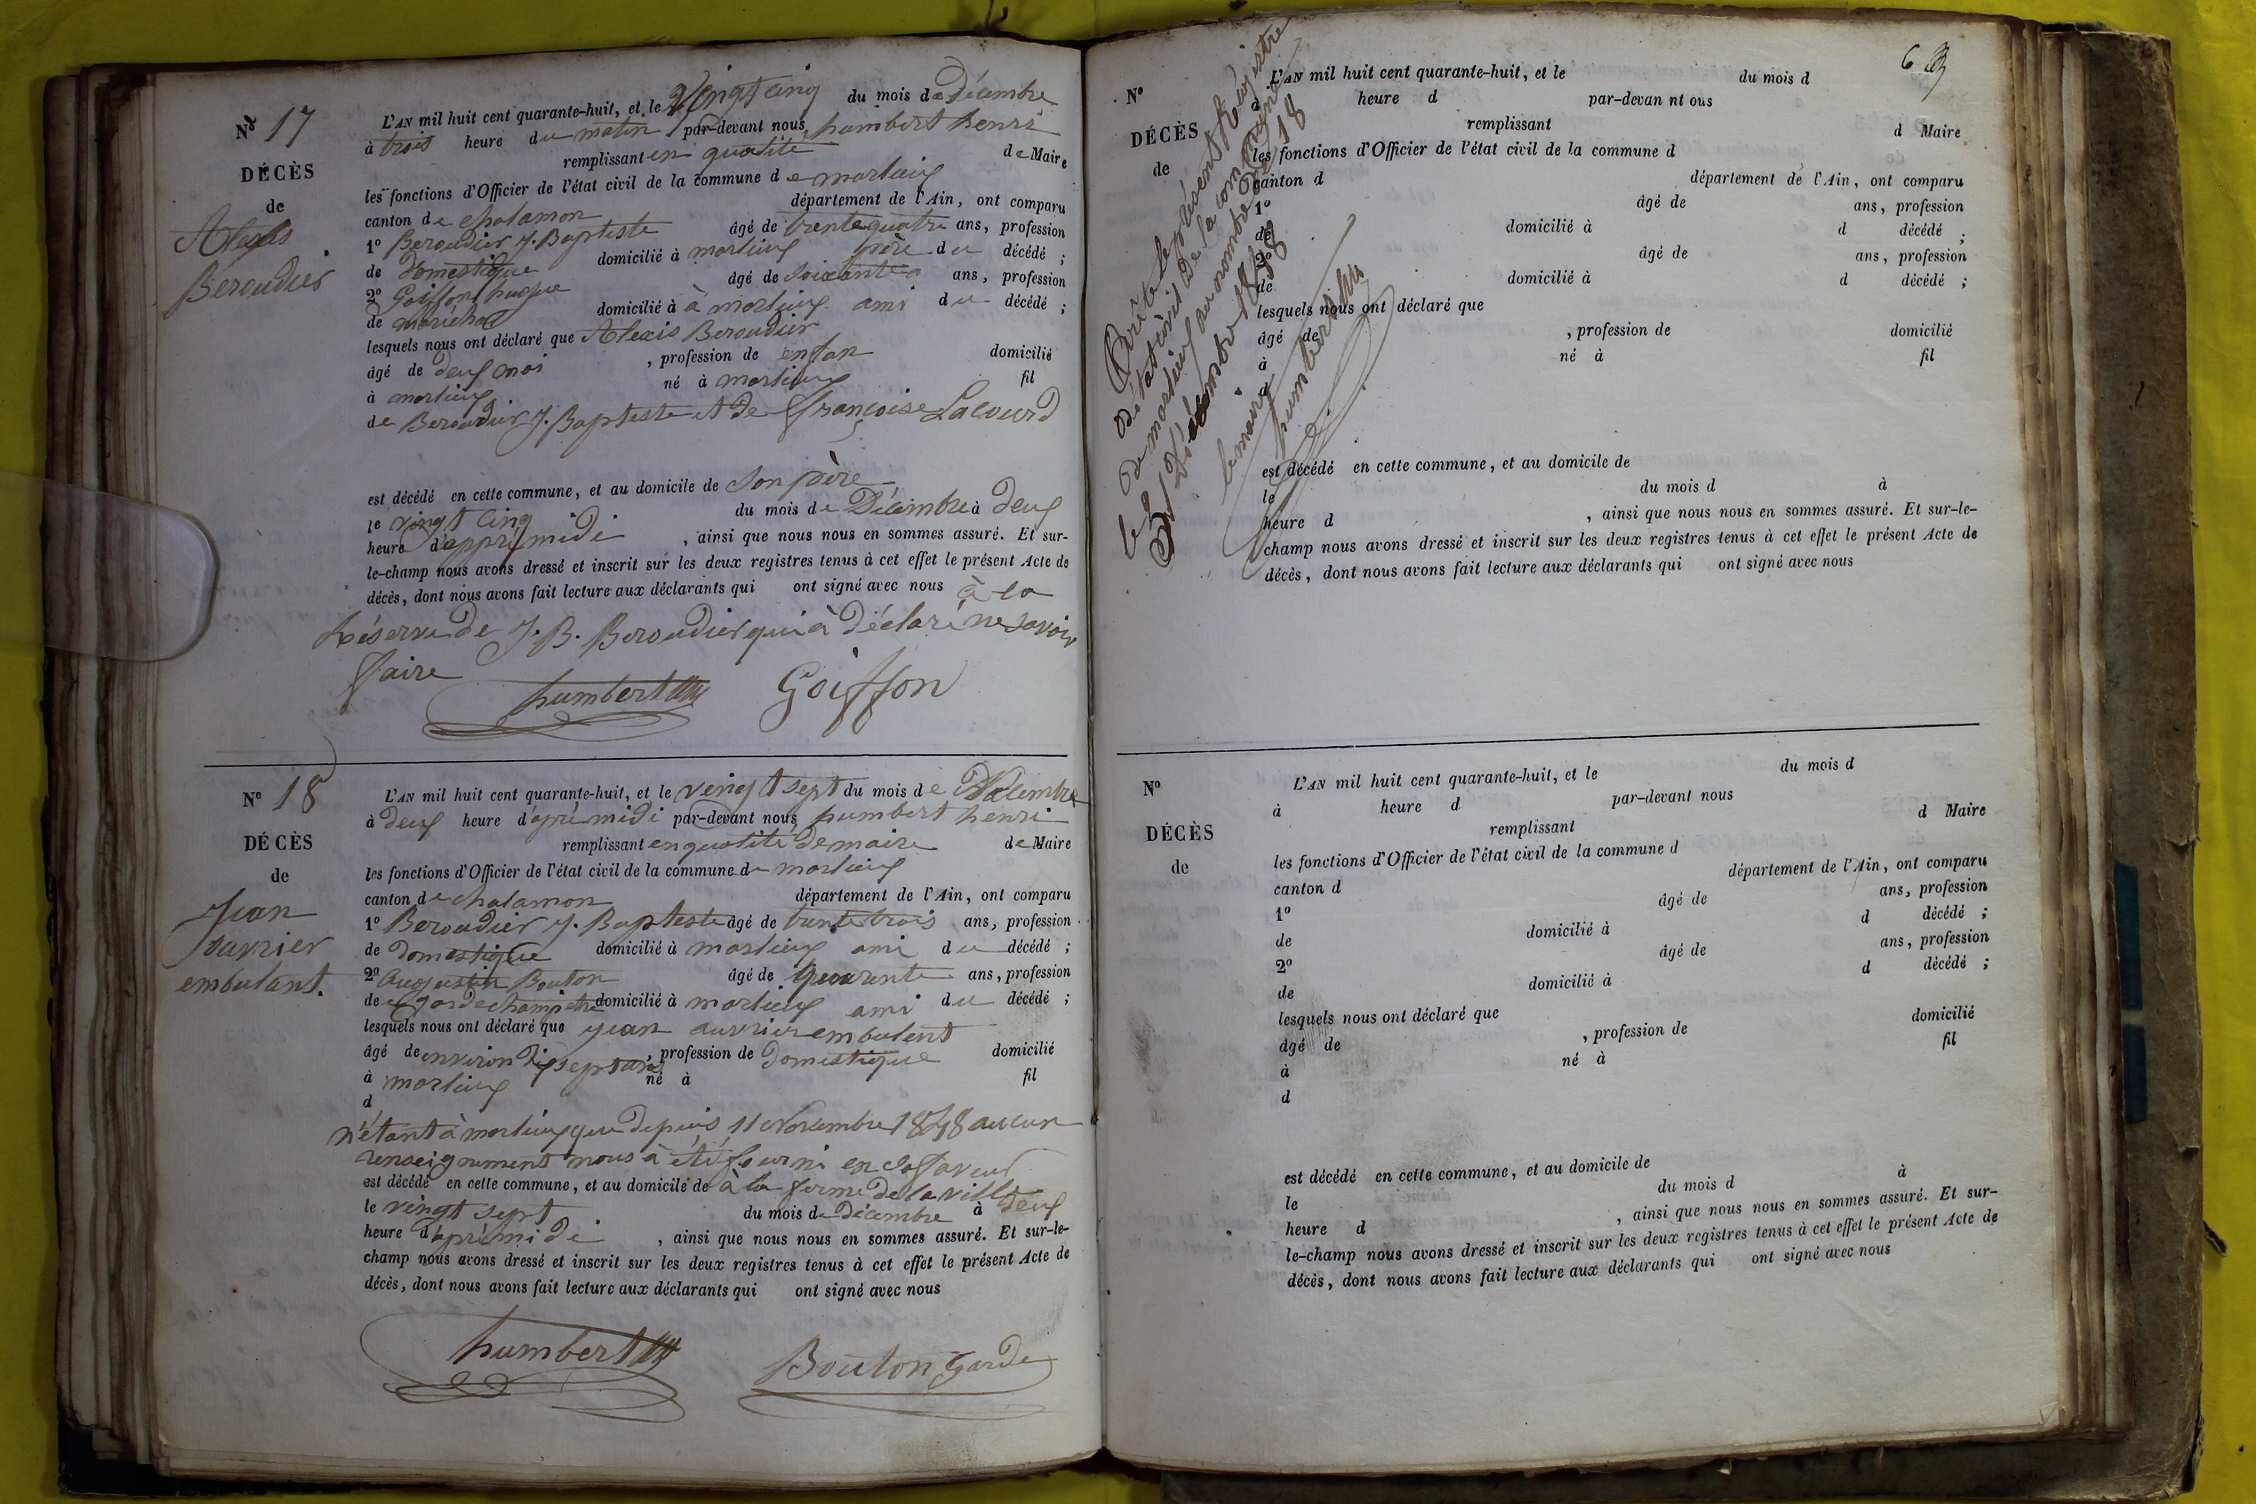 Nº 17
DÉCÈS
de
Alexis
Beroudier
L'AN mil huit cent quarante-huit, et le Vingt cinq du mois de Décembre
à trois heure du matin par-devant nous, humbert henri
remplissant en qualité de Maire
les fonctions d'Officier de l'état civil de la commune de marlieux
canton de chalamon département de l'Ain, ont comparu
1º Beroudier J. Baptiste âgé de trente quatre ans, profession
de domestique domicilié à marlieux père du décédé ;
2º Goiffon hugue âgé de soixante ans, profession
de maréchal domicilié à à marlieux ami du décédé ;
lesquels nous ont déclaré que Alexis Beroudier
âgé de deux moi , profession de enfan domicilié
à marlieux né à marlieux fil
de Beroudier J. Baptiste et de françoise Lacourd
est décédé en cette commune, et au domicile de son père
le vingt cinq du mois de Décembre à deux
heure d'apprémidi , ainsi que nous nous en sommes assuré. Et sur-
le-champ nous avons dressé et inscrit sur les deux registres tenus à cet effet le présent Acte de
décès, dont nous avons fait lecture aux déclarants qui ont signé avec nous à la
réserve de J. B. Beroudier qui à déclaré ne savoir
faire
humbert Goiffon
Nº 18
DÉCÈS
de
Jean
ouvrier
embulant.
L'AN mil huit cent quarante-huit, et le vingt sept du mois de Décembre
à deux heure d'aprémidi par-devant nous humbert henri
remplissant en qualité de maire de Maire
les fonctions d'Officier de l'état civil de la commune de marlieux
canton de chalamon département de l'Ain, ont comparu
1º Beroudier J. Baptiste âgé de trente trois ans, profession
de domestique domicilié à marlieux ami du décédé ;
2º augustin Bouton âgé de quarente ans, profession
de garde champetre domicilié à marlieux ami du décédé ;
lesquels nous ont déclaré que jean auvrier embulent
âgé de environ dix sept ans , profession de domestique domicilié
à marlieux né à fil
d
n'étant à marlieux que depuis 11 Novembre 1848 aucun
renseignement nous à été fourni en sa faveur
est décédé en cette commune, et au domicile de à la ferme de la ville
le vingt sept du mois de décembre à deux
heure d'aprémidi , ainsi que nous nous en sommes assuré. Et sur-le-
champ nous avons dressé et inscrit sur les deux registres tenus à cet effet le présent Acte de
décès, dont nous avons fait lecture aux déclarants qui ont signé avec nous
humbert Bouton garde
6
le présent Registre
de l'état civil de la commune
de marlieux au nombre de 18
le 31 Décembre 1848
le maire
humbert
Nº
DÉCÈS
de
L'AN mil huit cent quarante-huit, et le du mois d
à heure d par-devan nt ous
remplissant d Maire
les fonctions d'Officier de l'état civil de la commune d
canton d département de l'Ain, ont comparu
1º âgé de ans, profession
de domicilié à d décédé ;
2º âgé de ans, profession
de domicilié à d décédé ;
lesquels nous ont déclaré que
âgé de , profession de domicilié
à né à fil
d
est décédé en cette commune, et au domicile de
le du mois d à
heure d , ainsi que nous nous en sommes assuré. Et sur-le-
champ nous avons dressé et inscrit sur les deux registres tenus à cet effet le présent Acte de
décès, dont nous avons fait lecture aux déclarants qui ont signé avec nous
Nº
DÉCÈS
de
L'AN mil huit cent quarante-huit, et le du mois d
à heure d par-devant nous
remplissant d Maire
les fonctions d'Officier de l'état civil de la commune d
canton d département de l'Ain, ont comparu
1º âgé de ans, profession
de domicilié à d décédé ;
2º âgé de ans, profession
de domicilié à d décédé ;
lesquels nous ont déclaré que
âgé de , profession de domicilié
à né à fil
d
est décédé en cette commune, et au domicile de
le du mois d à
heure d , ainsi que nous nous en sommes assuré. Et sur-
le-champ nous avons dressé et inscrit sur les deux registres tenus à cet effet le présent Acte de
décès, dont nous avons fait lecture aux déclarants qui ont signé avec nous